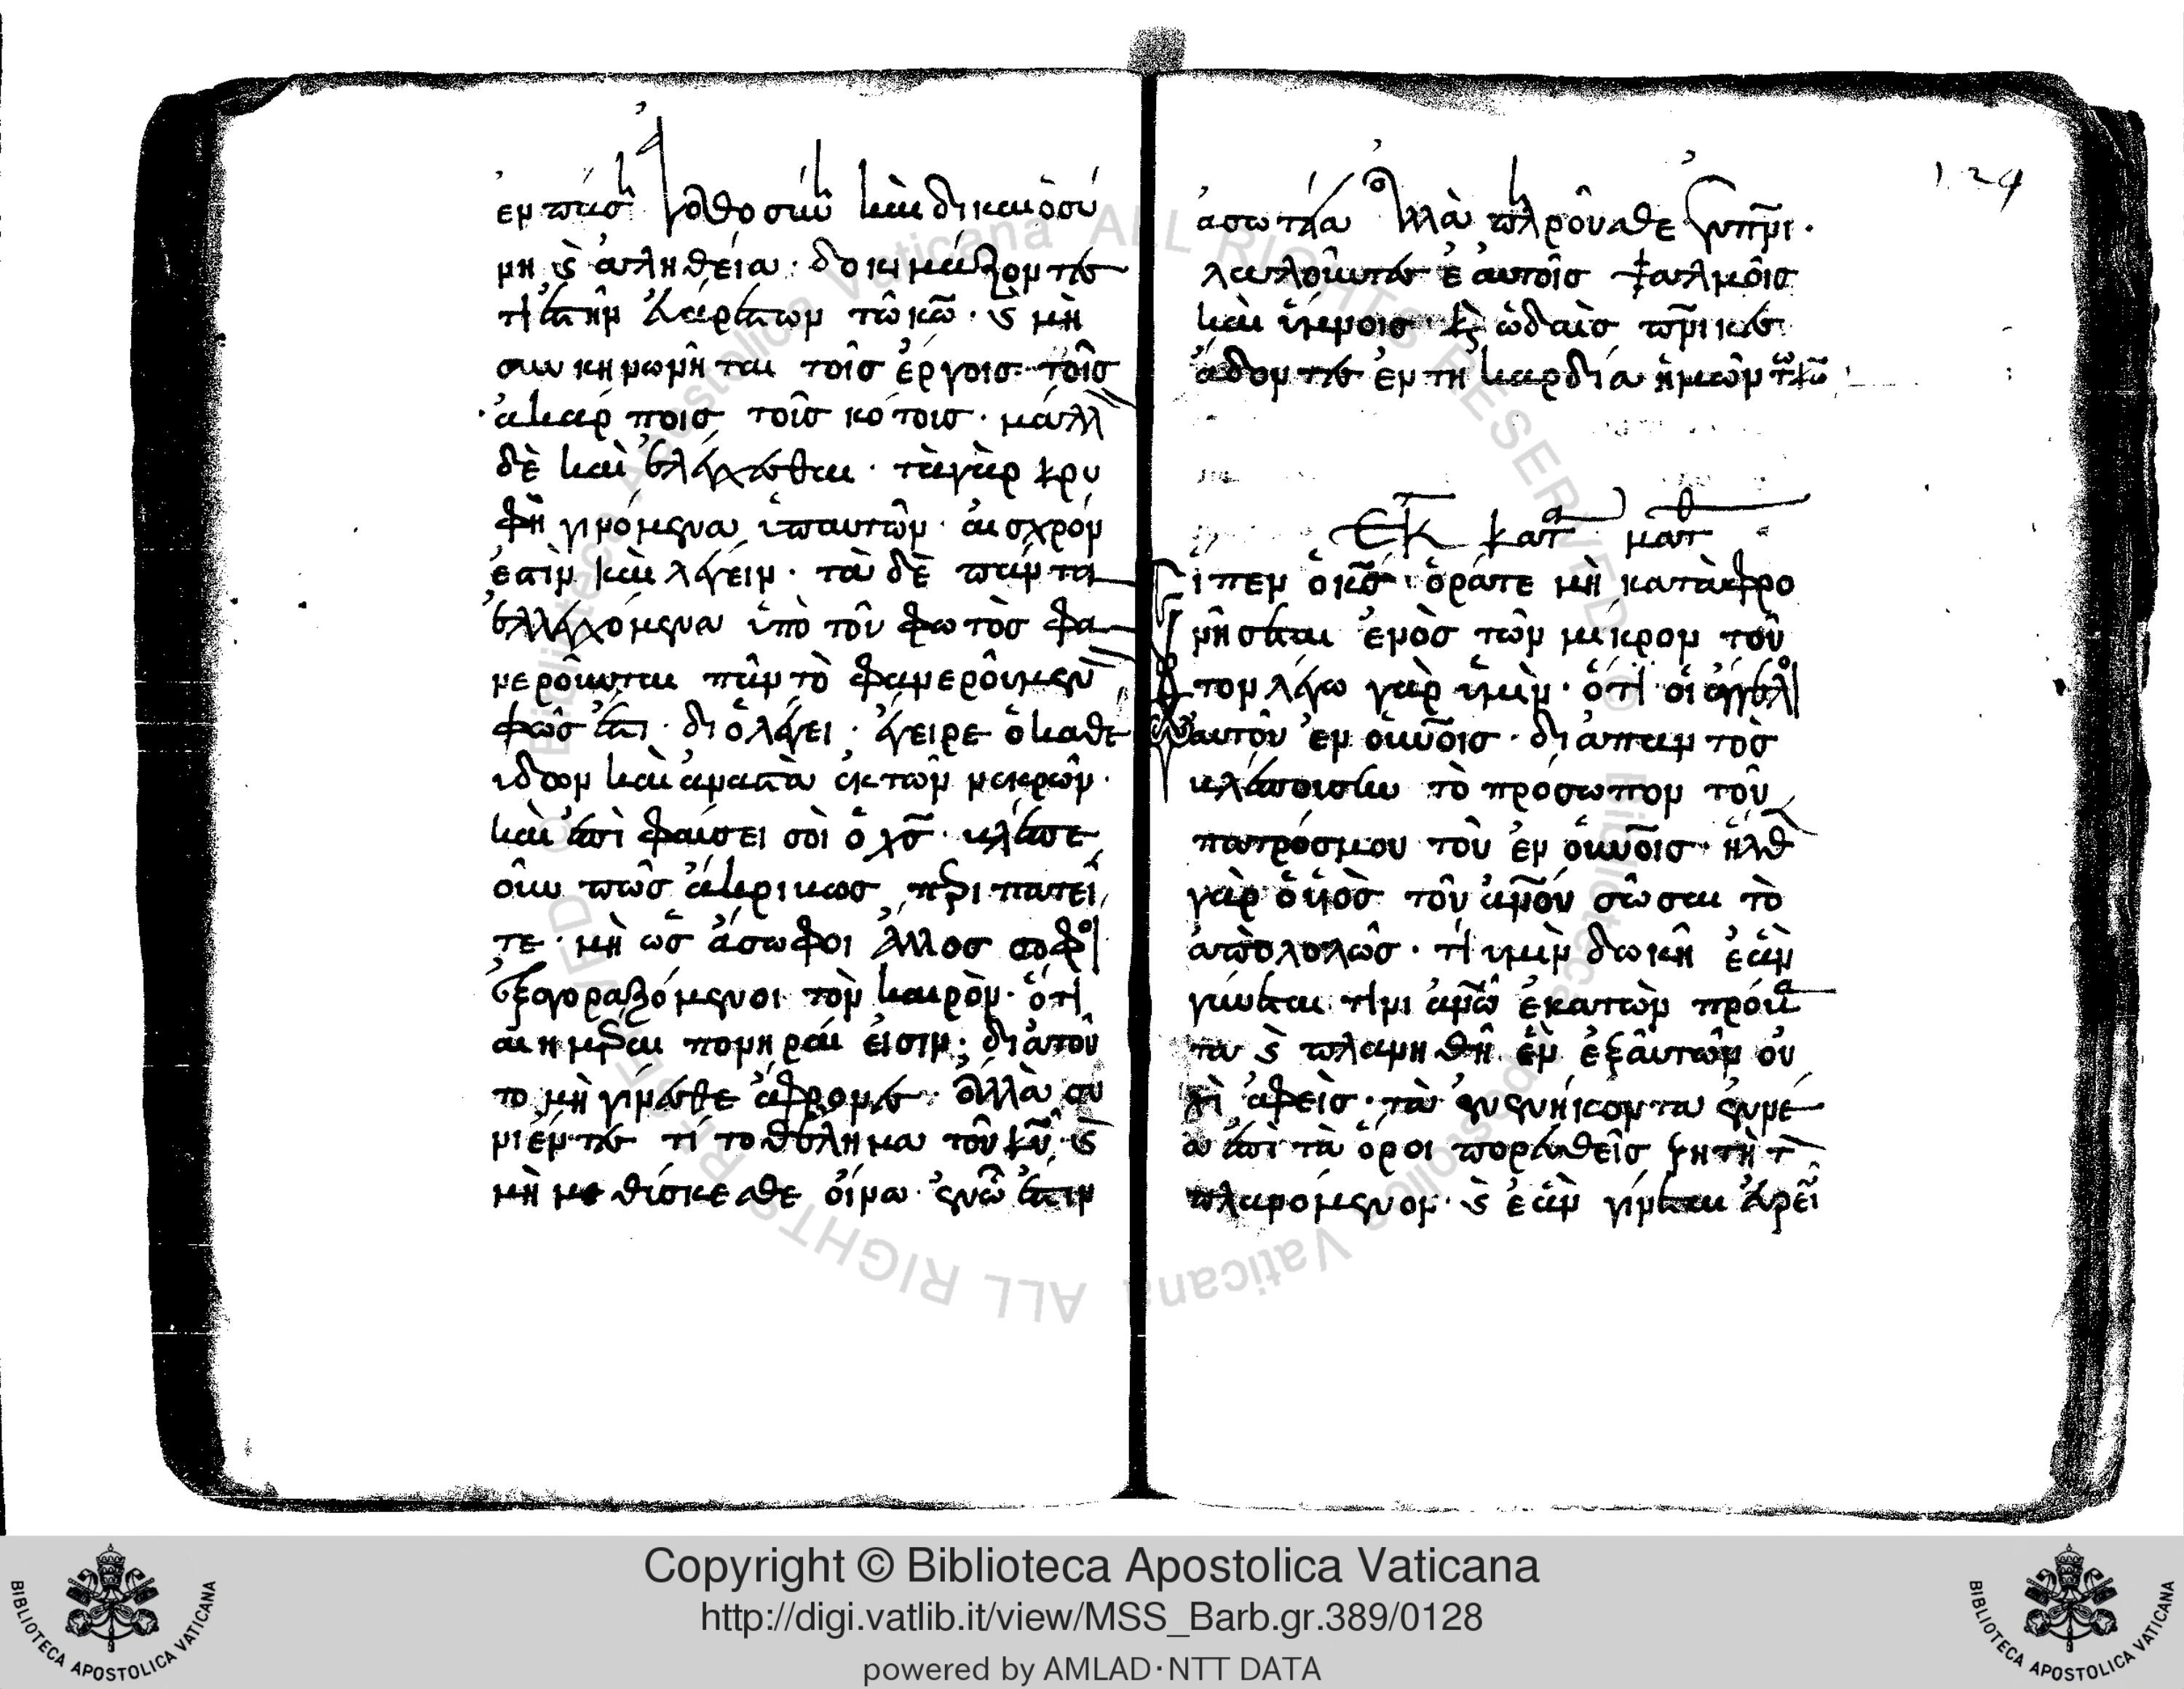 ἐν πάσ ἀγαθοσύν καὶ δικαιὸσύ
νη κ ἀληθεία · δοκιμάζοντες
τί ἐστὶν ἐυάρεστων τῶ κῶ · κ μὴ
συνκηνωνῆται τοῖς ἔργοις τοῖς
ἀκάρποις τοῖς κότοις · μάλλ
δὲ καὶ ἐλέγχεσθαι · τὰ γὰρ κρυ
φῆ γινόμενα ὑπαυτῶν · αἰσχρόν
ἐστὶν καὶ λέγειν · τὰ δὲ πάντα
ἐλλεγχόμενα ὑπὸ τοῦ φωτὸς φα
νεροῦνται πᾶν τὸ φανεροῦμεν
φῶς ἐστι · διὸ λέγει · ἔγειρε ὁ καθε
ύδον καὶ ἀναστὰ ἐκ τῶν νεκρῶν ·
καὶ ἐπὶ φαύσει σοὶ ὁ χς · βλέπετε
οὖν πῶς ἀκριβως περιπατεῖ
τε · μὴ ὡς ἄσωφοι ἀλλος σοφοὶ
ἐξαγοραζόμενοι τὸν καιρὸν · ὅτι
αι ημέραι πονηραί εἰσιν · διὰ τοῦ
το μὴ γίνεσθε ἄφρονες · ἀλλὰ συ
νιέντες τί το θέλημα τοῦ κυ · κ
μὴ μεθύσκεσθε οίνω · ἐν ῶ ἐστιν
129
ἀσωτία ἀλλὰ πληροῦσθε ἐν πνι ·
λαλοῦντες ἑαυτοῖς ψαλμοῖς
καὶ ὕμνοις κ ὠδαῖς πνικες
ἄδοντες ἐν τη καρδία ἡμῶν τῶ κῶ
Εκ κατ ματθ
ἶπεν ὁ κς ὁράτε μὴ καταφρο
νῆσεται ἑνὸς τῶν μικρον του
τον λέγω γὰρ ὑμὶν · ὅτι οἱ ἀγγελοι
αυτοῦ ἐν οὐνοις · διἀπαντὸς
βλέποισιν τὸ πρόσωπον τοῦ
πατρόσμου τοῦ ἐν οὐνοις · ἦλθ
γὰρ ὁ ὑιὸς τοῦ ἀνου σῶσαι τὸ
ἀπὸλολῶς · τί υμὶν δωκῆ ἐὰν
γίνεται τίνι ἀνῶ ἑκατὼν πρόβα
τα κ πλανηθῆ ἓν ἐξαὐτῶν οὐ
χὶ ἀφεὶς · τὰ ἐνενήκοντα ἐννέ
α ἐπὶ τὰ ὄροι πορευθεῖς ζητὴ τ
πλανομενον · κ ἐὰν γίνεται ἑυρεῖ
Copyright © Biblioteca Apostolica Vaticana
http://digi.vatlib.it/view/MSS_Barb.gr.389/0128
powered by AMLAD·NTT DATA